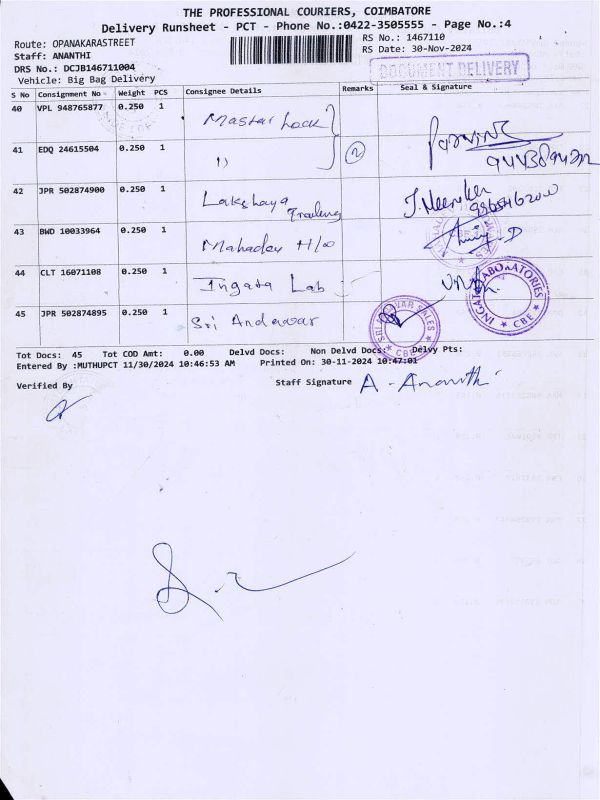 THE PROFESSIONAL COURIERS, COIMBATORE
Delivery Runsheet - PCT - Phone No.:0422-3505555 - Page No.:4
Route: OPANAKARASTREET
RS No.: 1467110
Staff: ANANTHI
RS Date: 30-Nov-2024
DRS No.: DCJB146711004
Vehicle: Big Bag Delivery
DOCUMENT DELIVERY
S No Consignment No Weight PCS Consignee Details Remarks Seal & Signature
40 VPL 948765877 0.250 1 Master Lock
41 EDQ 24615504 0.250 1 11 2
42 JPR 502874900 0.250 1 Lakshaya Trading
43 BWD 10033964 0.250 1 Mahadev H/w
44 CLT 16071108 0.250 1 Ingata Lab
INGATA LABORATORIES * CBE *
45 JPR 502874895 0.250 1 Sri Andavar
Tot Docs: 45 Tot COD Amt: 0.00 Delvd Docs: Non Delvd Docs: Delvy Pts:
Entered By :MUTHUPCT 11/30/2024 10:46:53 AM Printed On: 30-11-2024 10:47:01
Verified By
Staff Signature A. Ananthi